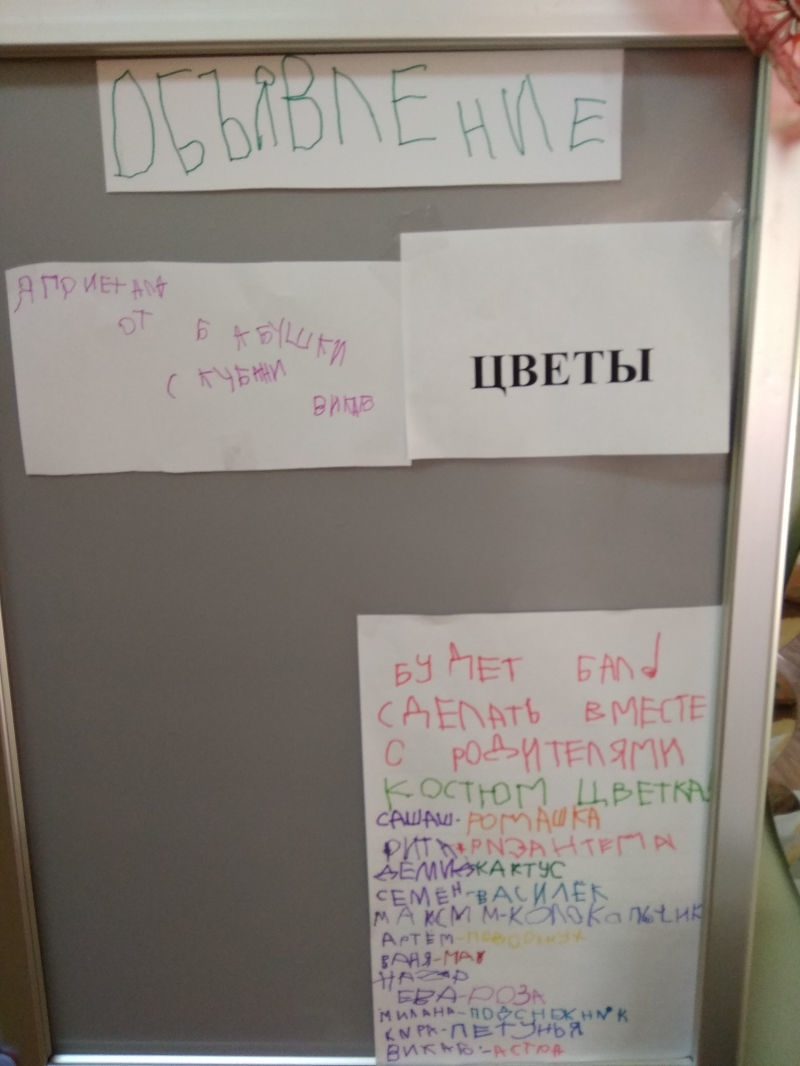 ОБЪЯВЛЕНИЕ
Я ПРИЕХАЛА
ОТ БАБУШКИ
С КУБАНИ
ВИКАБ
ЦВЕТЫ
БУДЕТ БАЛ
СДЕЛАТЬ ВМЕСТЕ
С РОДИТЕЛЯМИ
КОСТЮМ ЦВЕТКА!
САШАШ-РОМАШКА
РИТА-ХРИЗАНТЕМА
ДЕМИД-КАКТУС
СЕМЁН-ВАСИЛЁК
МАКСИМ-КОЛОКОЛЬЧИК
АРТЁМ-
ВАНЯ-МАК
НАЗАР
ЕВА-РОЗА
МИЛАНА-ПОДСНЕЖНИК
КИРА-ПЕТУНЬЯ
ВИКАБ-АСТРА